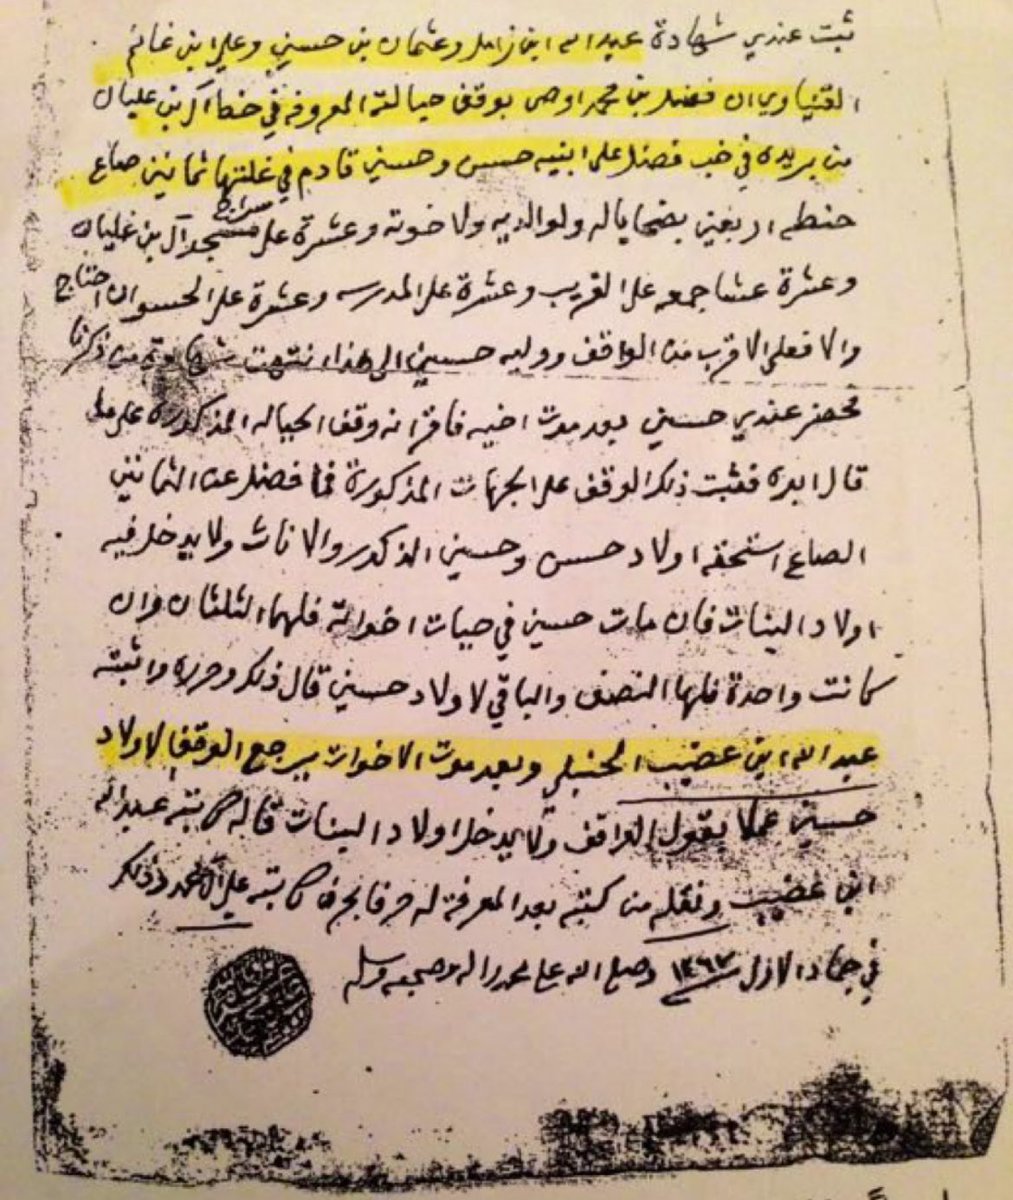 ثبت عندي شهادة عبدالله ابن زامل وعثمان بن حسين وعلي ابن غانم
ان فضل بن محمد اوصى بوقف حيالته المعروفه في خب آل بن عليان
من بريده في خب فضل على ابنيه حسن وحسين قادم في غلتها ثمانين صاع
حنطه اربعين بضحايا له ولوالديه ولاخوته وعشرة على سراج مسجد آل بن عليان
وعشرة عشا جمعه على القريب وعشرة على المدرسه وعشرة على الحسو ان احتاج
والا فعلى الاقرب من الواقف ووليه حسين الى هذا انتهت شهادة من ذكرنا
فحضر عندي حسين بعد موت اخيه فاقر انه وقف الحياله المذكورة على ما
قال ابوه فثبت ذلك الوقف على الجهات المذكورة فما فضل عن الثمانين
الصاع استحقه اولاد حسن وحسين الذكور والاناث ولا يدخل فيه
اولاد البنات فان مات حسين في حيات اخواته فلهما الثلثان وان
كانت واحدة فلها النصف والباقي لاولاد حسين قال ذلك وحرره واثبته
عبدالله ابن عضيب الحنبلي وبعد موت الاخوات يرجع الوقف لاولاد
حسين عملا بقول الواقف ولا يدخل اولاد البنات قاله كاتبه عبدالله
ابن عضيب ونقله من كتبه بعد المعرفة له حرفا بحرف كاتبه علي آل محمد وذلك
في جماد الاول وصلى الله على محمد واله وصحبه وسلم